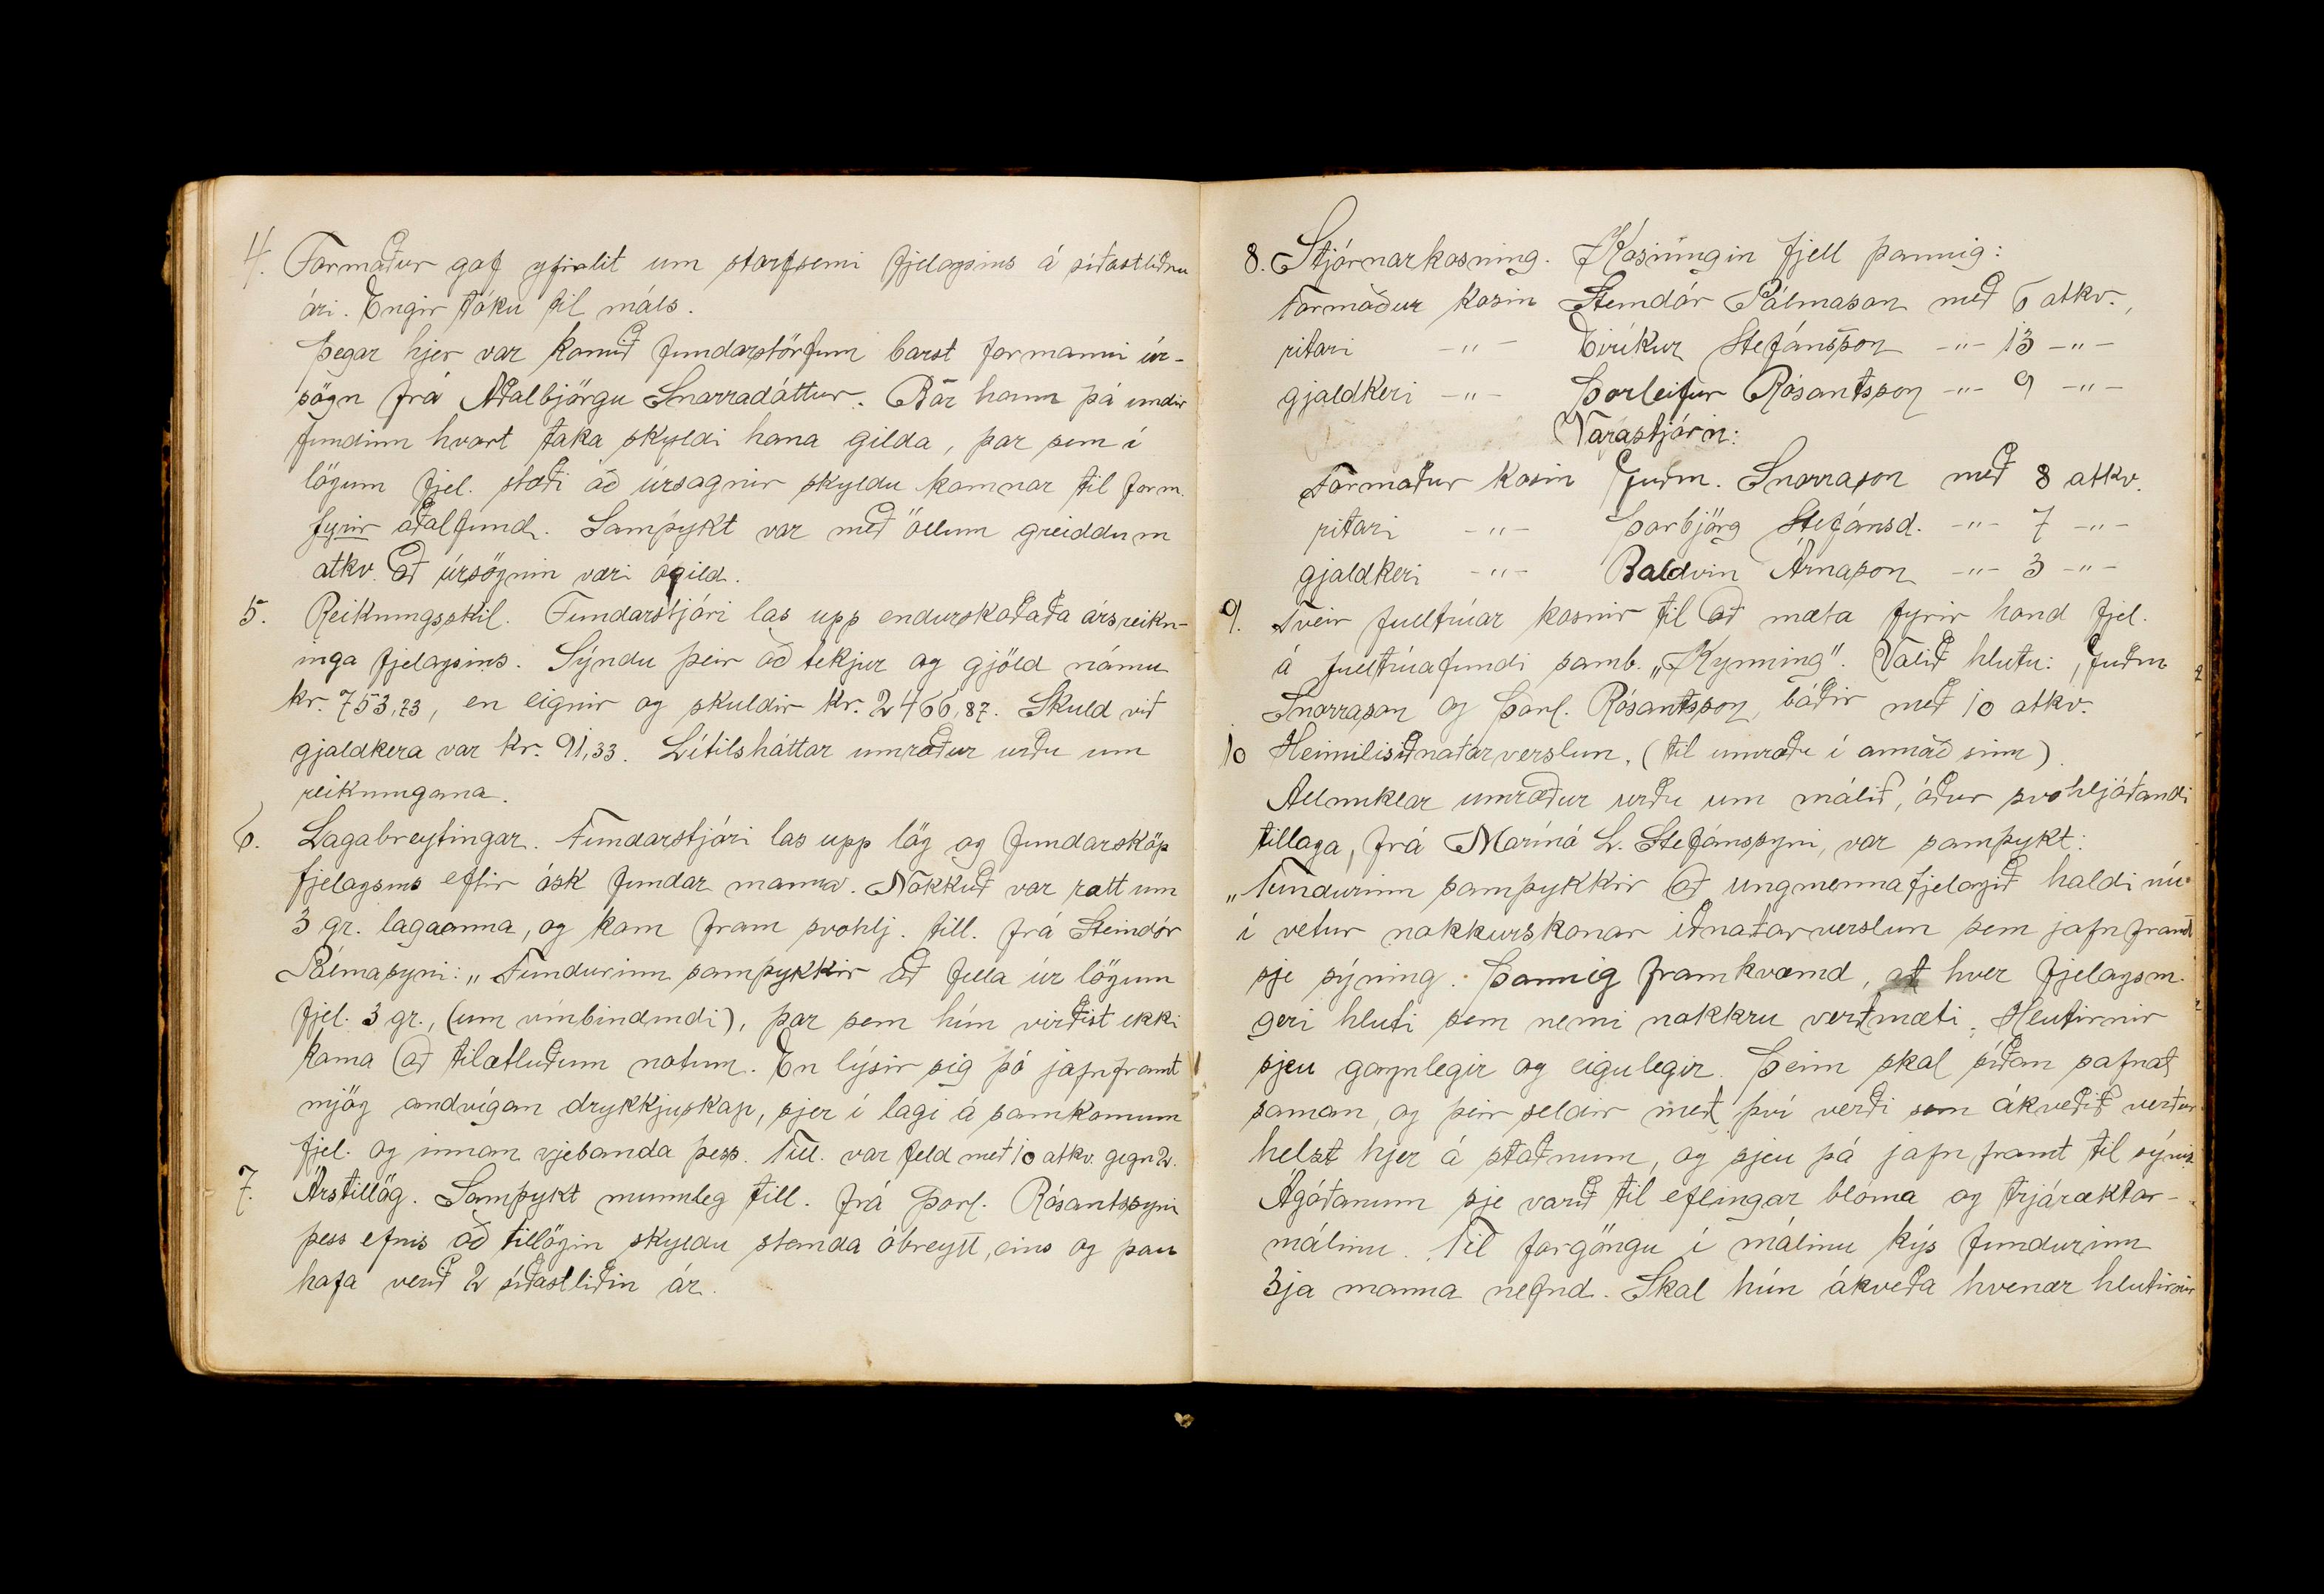 4. Formaður gaf yfirlit um starfsemi fjelagsins á síðastliðnu
ári. Engir tóku til máls.
Þegar hjer var komið fundarstörfum barst formanni úr-
sögn frá Aðalbjörgu Snorradóttur. Bar hann þá undir
fundinn hvort taka skyldi hana gilda, þar sem í
lögum fjel. stæði að úrsagnir skyldu komnar til form.
fyrir aðalfund. Samþykt var með öllum greiddum
atkv. að úrsögnin væri ógild.
5. Reikningsskil. Fundarstjóri las upp endurskoðaða ársreikn-
inga fjelagsins. Sýndu þeir að tekjur og gjöld námu
kr. 753,73, en eignir og skuldir kr. 2466,87. Skuld við
gjaldkera var kr. 91,33. Lítilsháttar umræður urðu um
reikningana.
6. Lagabreytingar. Fundarstjóri las upp lög og fundarsköp
fjelagsins eftir ósk fundar manna. Nokkuð var rætt um
3 gr. laganna, og kom fram svohlj. till. frá Steindór
Pálmasyni: „Fundurinn samþykkir að fella úr lögum
fjel. 3 gr., (um vínbindindi), þar sem hún virðist ekki
koma að tilætluðum notum. En lýsir sig þó jafnframt
mjög andvígan drykkjuskap, sjer í lagi á samkomum
fjel. og innan vjebanda þess. Till. var feld með 10 atkv. gegn 2.
7. Árstillög. Samþykt munnleg till. frá Þorl. Rósantssyni
þess efnis að tillögin skyldu standa óbreytt, eins og þau
hafa verið 2 síðastliðin ár.
8. Stjórnarkosning. Kosningin fjell þannig:
Formaður kosin Steindór Pálmason með 6 atkv.,
ritari -"- Eiríkur Stefánsson -"- 13 -"-
gjaldkeri -"- Þorleifur Rósantsson -"- 9 -"-
Varastjórn:
Formaður kosin Guðm. Snorrason með 8 atkv.
ritari -"- Þorbjörg Stefánsd. -"- 7 -"-
gjaldkeri -"- Baldvin Árnason -"- 3 -"-
9. Tveir fulltrúar kosnir til að mæta fyrir hond fjel.
á fulltrúafundi samb. „Kynning". Valið hlutu: Guðm
Snorrason og Þorl. Rósantsson, báðir með 10 atkv.
10 Heimilisiðnaðarverslun. (til umræðu í annað sinn).
Allmiklar umræður urðu um málið, áður svohljóðandi
tillaga, frá Marínó L. Stefánssyni, var samþykt:
„Fundurinn samþykkir að ungmennafjelagið haldi nú
í vetur nokkurskonar iðnaðarverslun sem jafnframt
sje sýning. Þannig framkvæmd, at hver fjelagsm.
geri hluti sem nemi nokkru verðmæti. Hlutirnir
sjeu gagnlegir og eigulegir. Þeim skal síðan safnað
saman, og þeir seldir með því verði sem ákveðið verður
helzt hjer á staðnum, og sjeu þá jafnframt til sýnis.
Ágóðanum sje varið til eflingar blóma og trjáræktar-
málinu. Til forgöngu í málinu kýs fundurinn
3ja manna nefnd. Skal hún ákveða hvenær hlutirnir